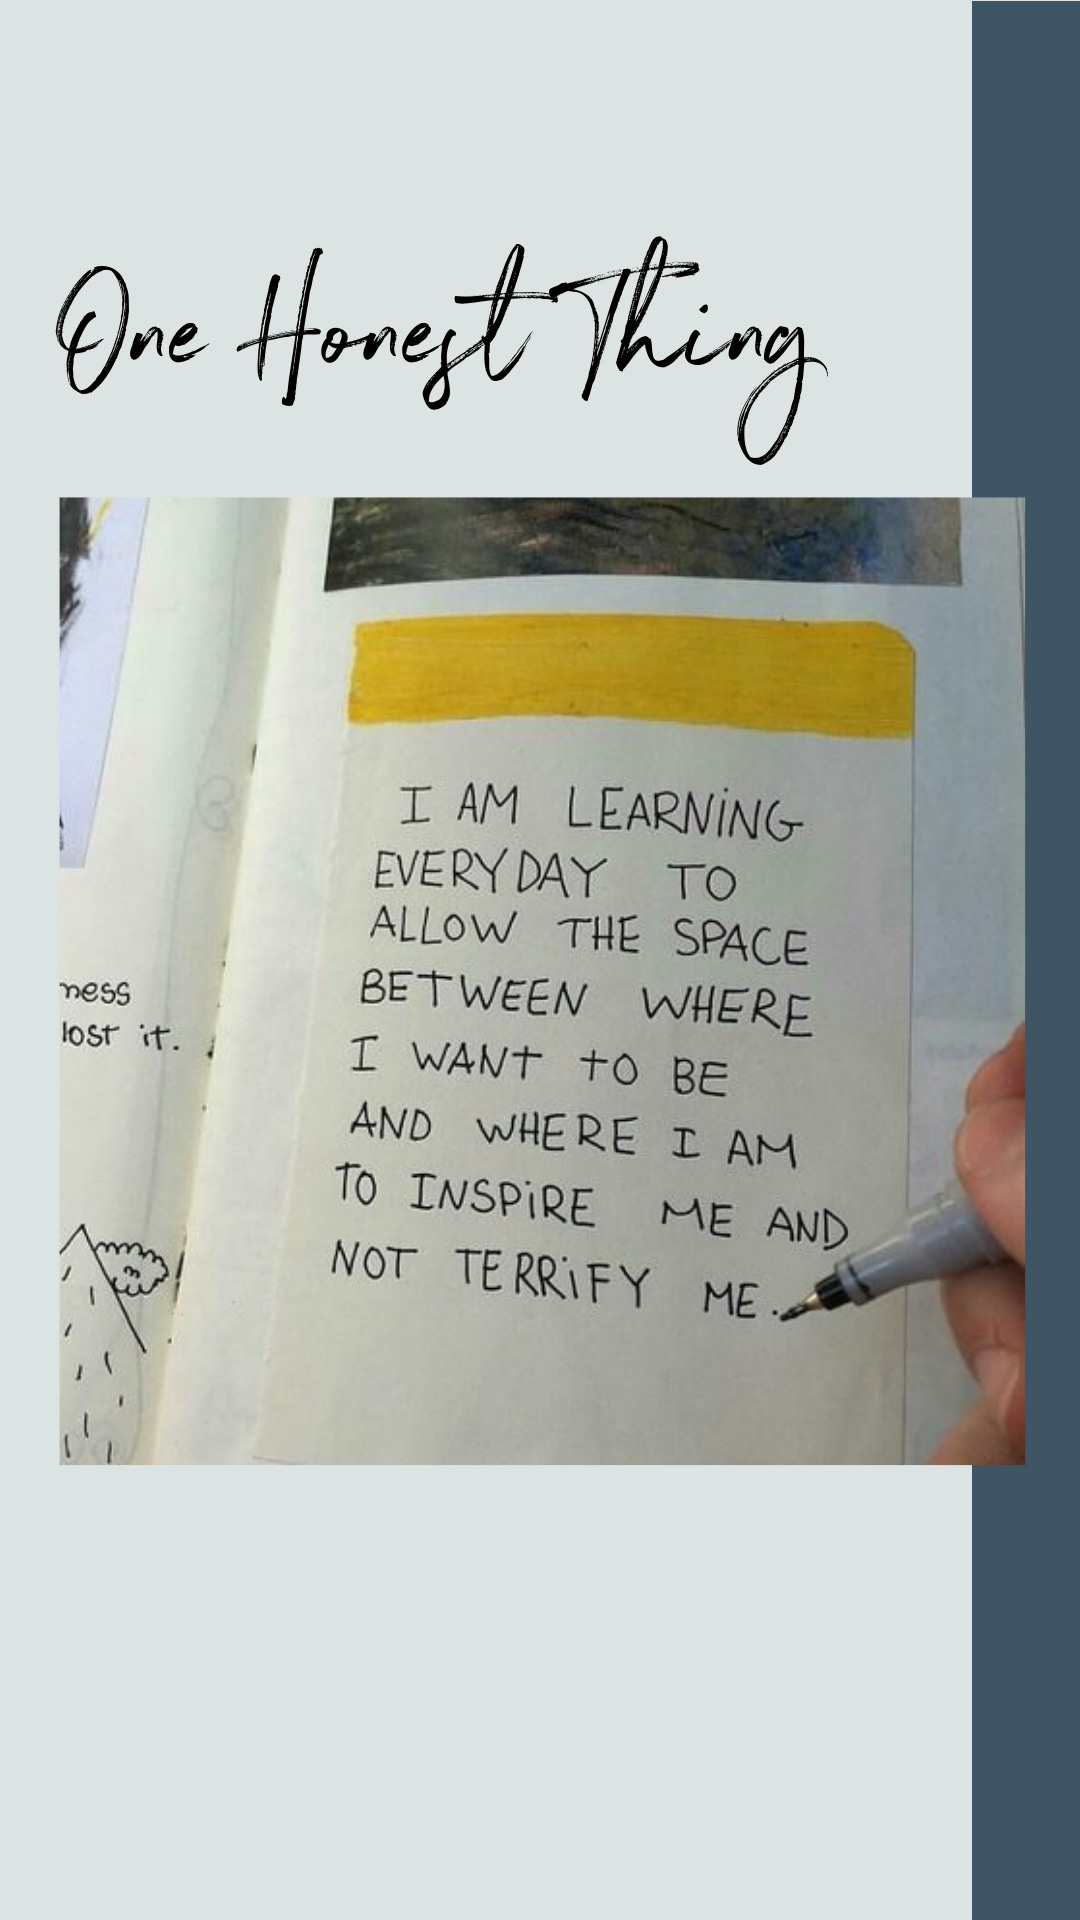 One Honest Thing
I AM LEARNING
EVERYDAY TO
ALLOW THE SPACE
BETWEEN WHERE
I WANT TO BE
AND WHERE I AM
TO INSPIRE ME AND
NOT TERRIFY ME.
ness
lost it.